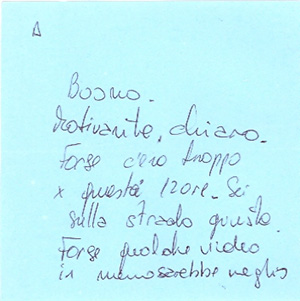 Δ
Buono.
Motivante, chiaro.
Forse c'era troppo
x queste 12ore. Sei
sulla strada giusta.
Forse qualche video
in meno sarebbe meglio